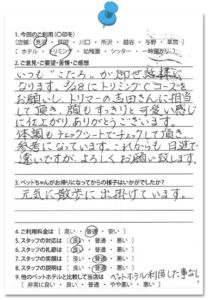 1.今回のご利用(○印を)
2.ご意見・ご要望・苦情・ご感想
いつも"こたろ"が お世話様に
なります。 トリミングCコースを
お願いし、トリマーの吉田さんに担当
して頂き、胸もすっきりと可愛い感じ
に仕上がりありがとうございます。
体調もチェックシートでチェックして頂き、
参考になっています。これからも
よろしくお願い致します。
3.ペットちゃんがお帰りになってからの様子はいかがでしたか?
元気に散歩に出掛けています。
4.ご利用料金は ( 良い・普通・悪い )
5.スタッフの対応は ( 良い・普通・悪い )
6.スタッフの礼節は ( 良い・普通・悪い )
7.スタッフの笑顔は ( 良い・普通・悪い )
8.スタッフの説明は ( 良い・普通・悪い )
9.他のペットホテルと比較して当店は ペットホテル利用した事なし
( 非常に良い・良い・普通・やや悪い・悪い )